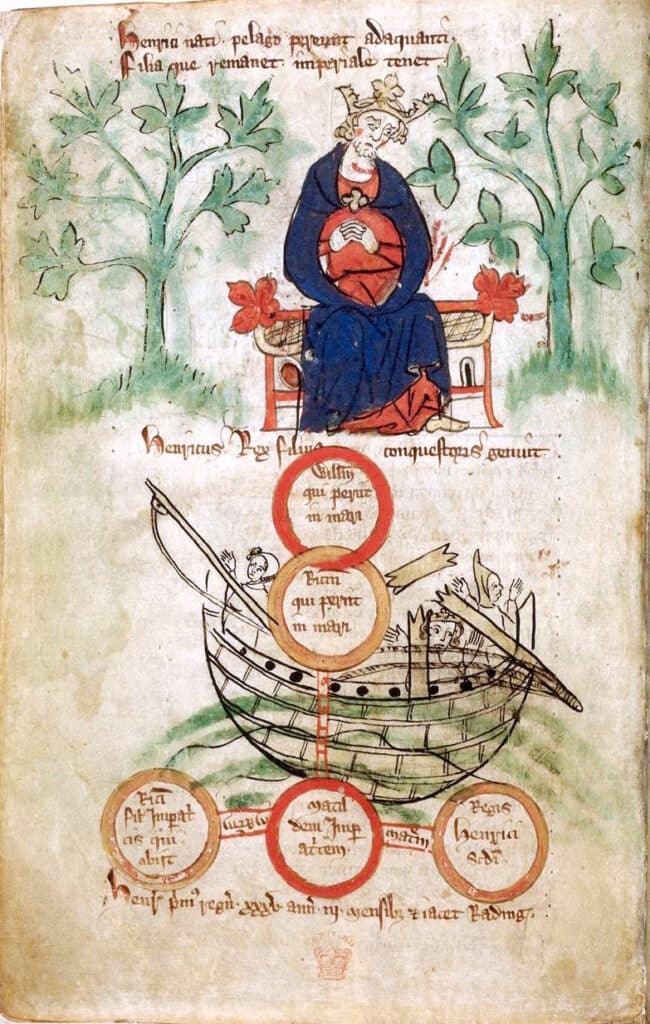 Henrici nati pelago pereunt adaquanti.
Filia que remanet imperiale tenet
Henricus Rex filius conquestoris genuit
Willm
qui periit
in mari
Ricm
qui periit
in mari
Rici
fil Impat
cis qui
obiit
Matil
dem Imp
atcem
matem
Regis
Henrici
scdi
Henr pm regn xxxv ann iii mensib et iacet Rading